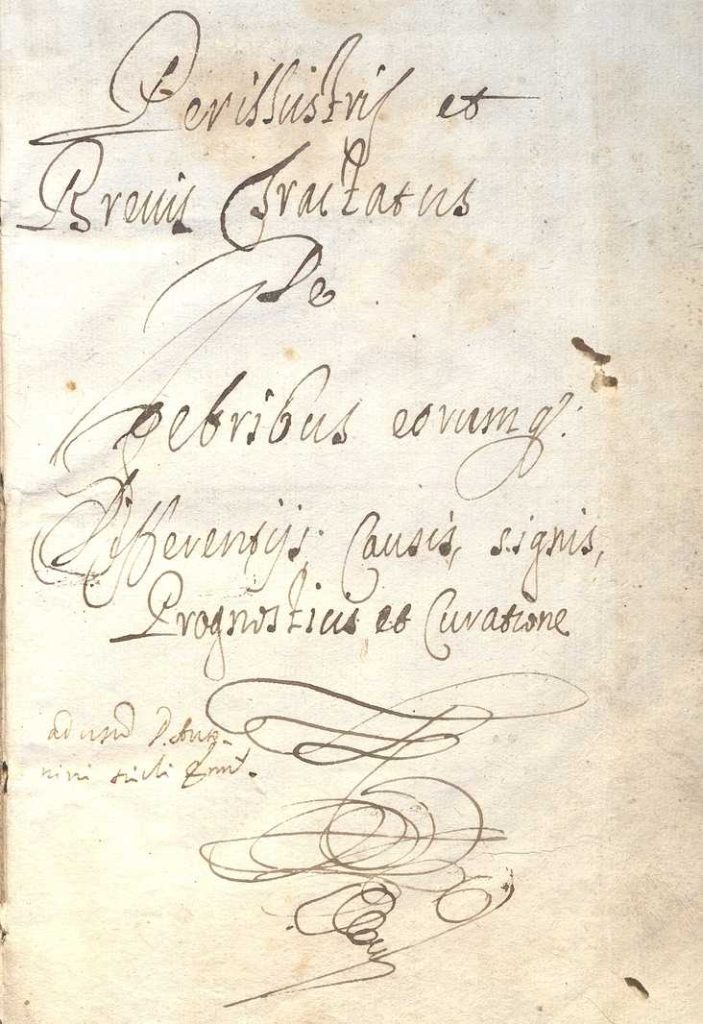 Perillustris et
Brevis Tractatus
De
Febribus eorumq.
Differentijs, Causis, signis,
Prognosticis et Curatione
ad usũ D. Anto-
nini